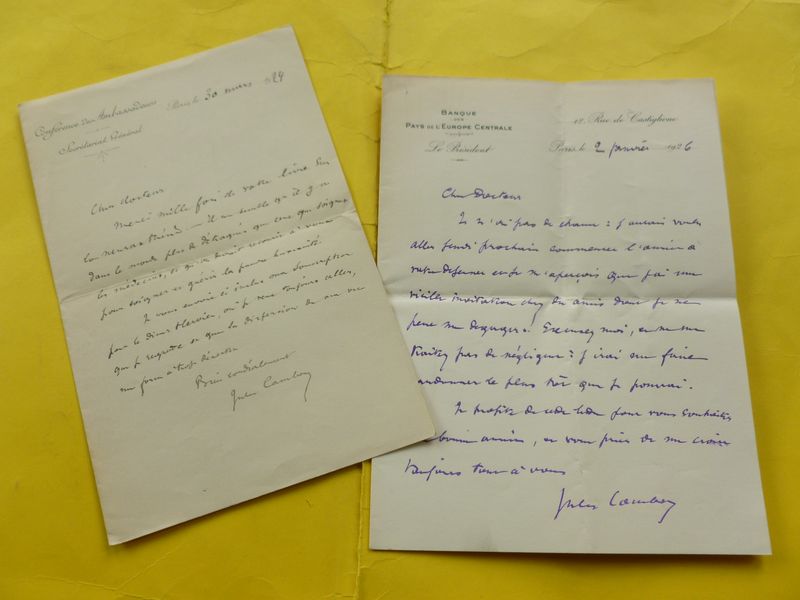 Conférence des Ambassadeurs
Secrétariat Général
Paris, le 30 mars 1929
Cher docteur
Merci mille fois de votre livre sur
la neurasthénie — il me semble qu'il y a
dans le monde plus de détraqués que ceux que soignent
les médecins, et qu'on devrait recourir à vous
pour soigner et guérir la pauvre humanité.
Je vous envoie ci inclus ma souscription
pour le diner Hervieu, où je veux toujours aller,
que je regrette et que la dispersion de ma vie
me force à trop déserter
Bien cordialement
Jules Cambon
BANQUE
DES
PAYS DE L'EUROPE CENTRALE
Le Président
12, Rue de Castiglione
Paris, le 2 janvier 1926
Cher Docteur
Je n'ai pas de chance : j'aurais voulu
aller lundi prochain commencer l'année à
votre déjeuner et je m'aperçois que j'ai une
vieille invitation chez des amis dont je ne
peux me dégager. Excusez moi, et ne me
traitez pas de négligent : j'irai me faire
pardonner le plus tôt que je pourrai.
Je profite de cette lettre pour vous souhaiter
bonne année, et vous prier de me croire
toujours tout à vous
Jules Cambon